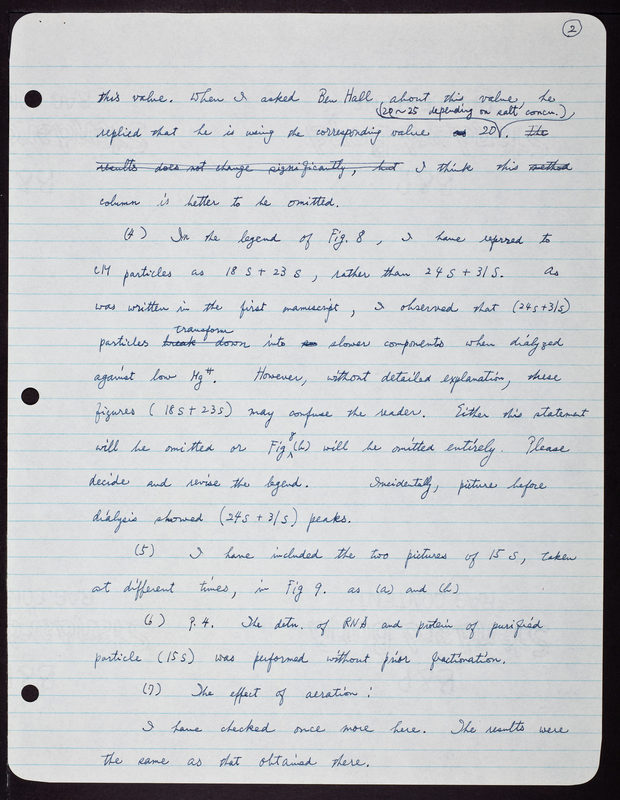 2
this value. When I asked Ben Hall about this value, he
(20~25 depending on salt concn.),
replied that he is using the corresponding value as 20. The
results does not change significantly, but I think this method
column is better to be omitted.
(4) In the legend of Fig. 8, I have reprred to
CM particles as 18 S + 23 S, rather than 24 S + 31 S. As
was written in the first manuscript, I observed that (24S+31S)
transform
particles break down into slower components when dialyzed
against low Mg⁺⁺. However, without detailed explanation, these
figures (18S+23S) may confuse the reader. Either this statement
will be omitted or Fig 8 (b) will be omitted entirely. Please
decide and revise the legend. Incidentally, picture before
dialysis showed (24S + 31S) peaks.
(5) I have included the two pictures of 15 S, taken
at different times, in Fig 9. as (a) and (b)
(6) P. 4. The detn. of RNA and protein of purified
particle (15S) was performed without prior fractionation.
(7) The effect of aeration:
I have checked once more here. The results were
the same as that obtained there.